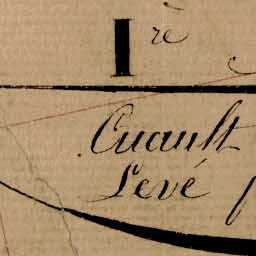 Ire
Cuault
Levé